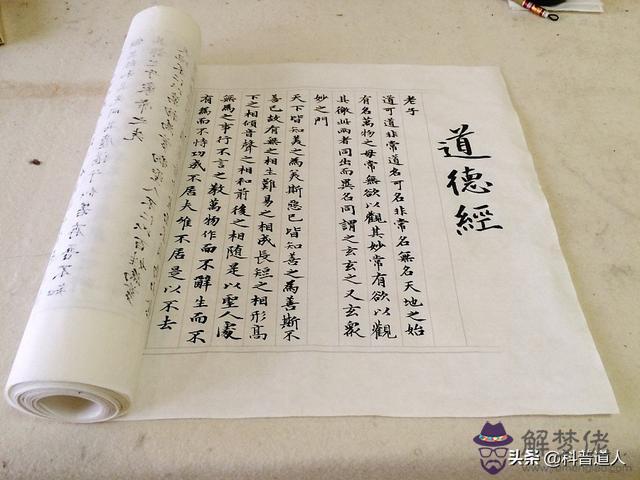 道德經
老子
道可道非常道名可名非常名無名天地之始
有名萬物之母常無欲以觀其妙常有欲以觀
其徼此兩者同出而異名同謂之玄玄之又玄眾
妙之門
天下皆知美之為美斯惡已皆知善之為善斯不
善已故有無之相生難易之相成長短之相形高
下之相傾音聲之相和前後之相隨是以聖人處
無為之事行不言之教萬物作而不辭生而不
有為而不恃功成不居夫唯不居是以不去
解梦佬
头条 @科普道人